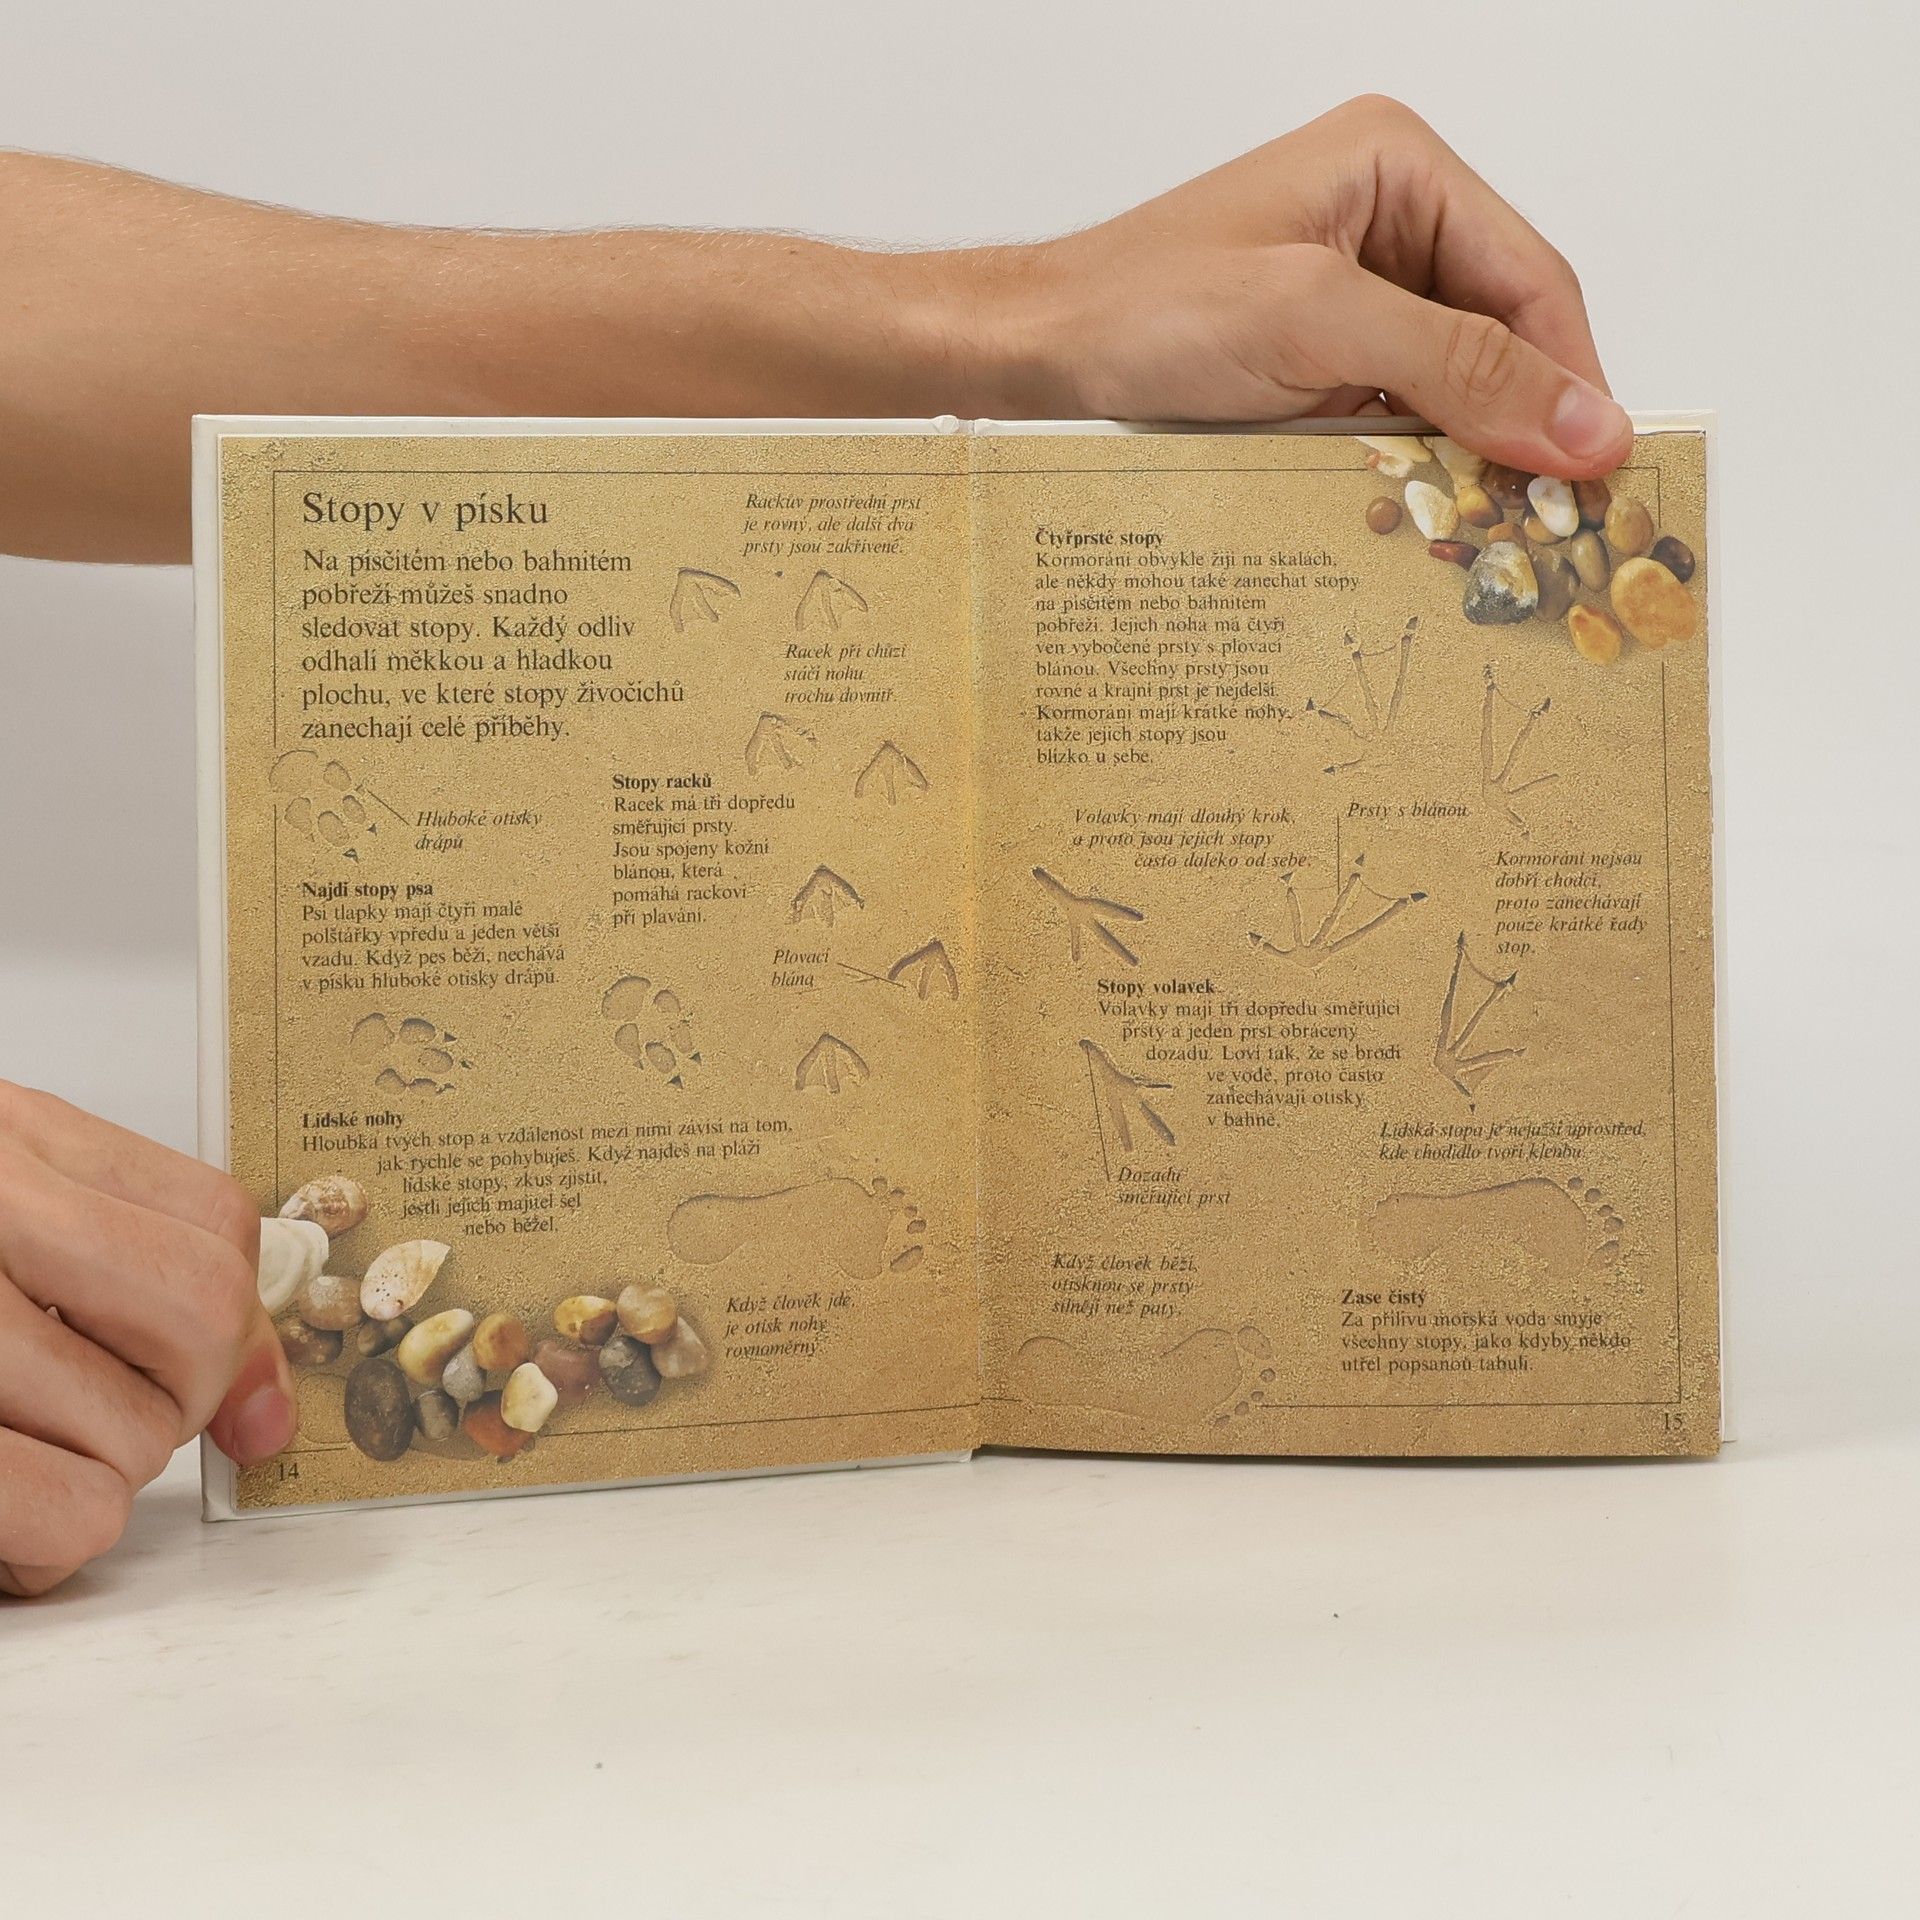 Stopy v písku
Na písčitém nebo bahnitém
pobřeží můžeš snadno
sledovat stopy. Každý odliv
odhalí měkkou a hladkou
plochu, ve které stopy živočichů
zanechají celé příběhy.
Rackův prostřední prst
je rovný, ale další dva
prsty jsou zakřivené.
Racek při chůzi
stáčí nohu
trochu dovnitř.
Hluboké otisky
drápů
Stopy racků
Racek má tři dopředu
směřující prsty.
Jsou spojeny kožní
blánou, která
pomáhá rackovi
při plavání.
Najdi stopy psa
Psí tlapky mají čtyři malé
polštářky vpředu a jeden větší
vzadu. Když pes běží, nechává
v písku hluboké otisky drápů.
Plovací
blána
Lidské nohy
Hloubka tvých stop a vzdálenost mezi nimi závisí na tom,
jak rychle se pohybuješ. Když najdeš na pláži
lidské stopy, zkus zjistit,
jestli jejich majitel šel
nebo běžel.
Když člověk jde,
je otisk nohy
rovnoměrný.
14
Čtyřprsté stopy
Kormoráni obvykle žijí na skalách,
ale někdy mohou také zanechat stopy
na písčitém nebo bahnitém
pobřeží. Jejich noha má čtyři
ven vybočené prsty s plovací
blánou. Všechny prsty jsou
rovné a krajní prst je nejdelší.
Kormoráni mají krátké nohy,
takže jejich stopy jsou
blízko u sebe.
Volavky mají dlouhý krok,
a proto jsou jejich stopy
často daleko od sebe.
Prsty s blánou
Kormoráni nejsou
dobří chodci,
proto zanechávají
pouze krátké řady
stop.
Stopy volavek
Volavky mají tři dopředu směřující
prsty a jeden prst obrácený
dozadu. Loví tak, že se brodí
ve vodě, proto často
zanechávají otisky
v bahně.
Dozadu
směřující prst
Lidská stopa je nejužší uprostřed,
kde chodidlo tvoří klenbu.
Když člověk běží,
otisknou se prsty
silněji než paty.
Zase čistý
Za přílivu mořská voda smyje
všechny stopy, jako kdyby někdo
utřel popsanou tabuli.
15